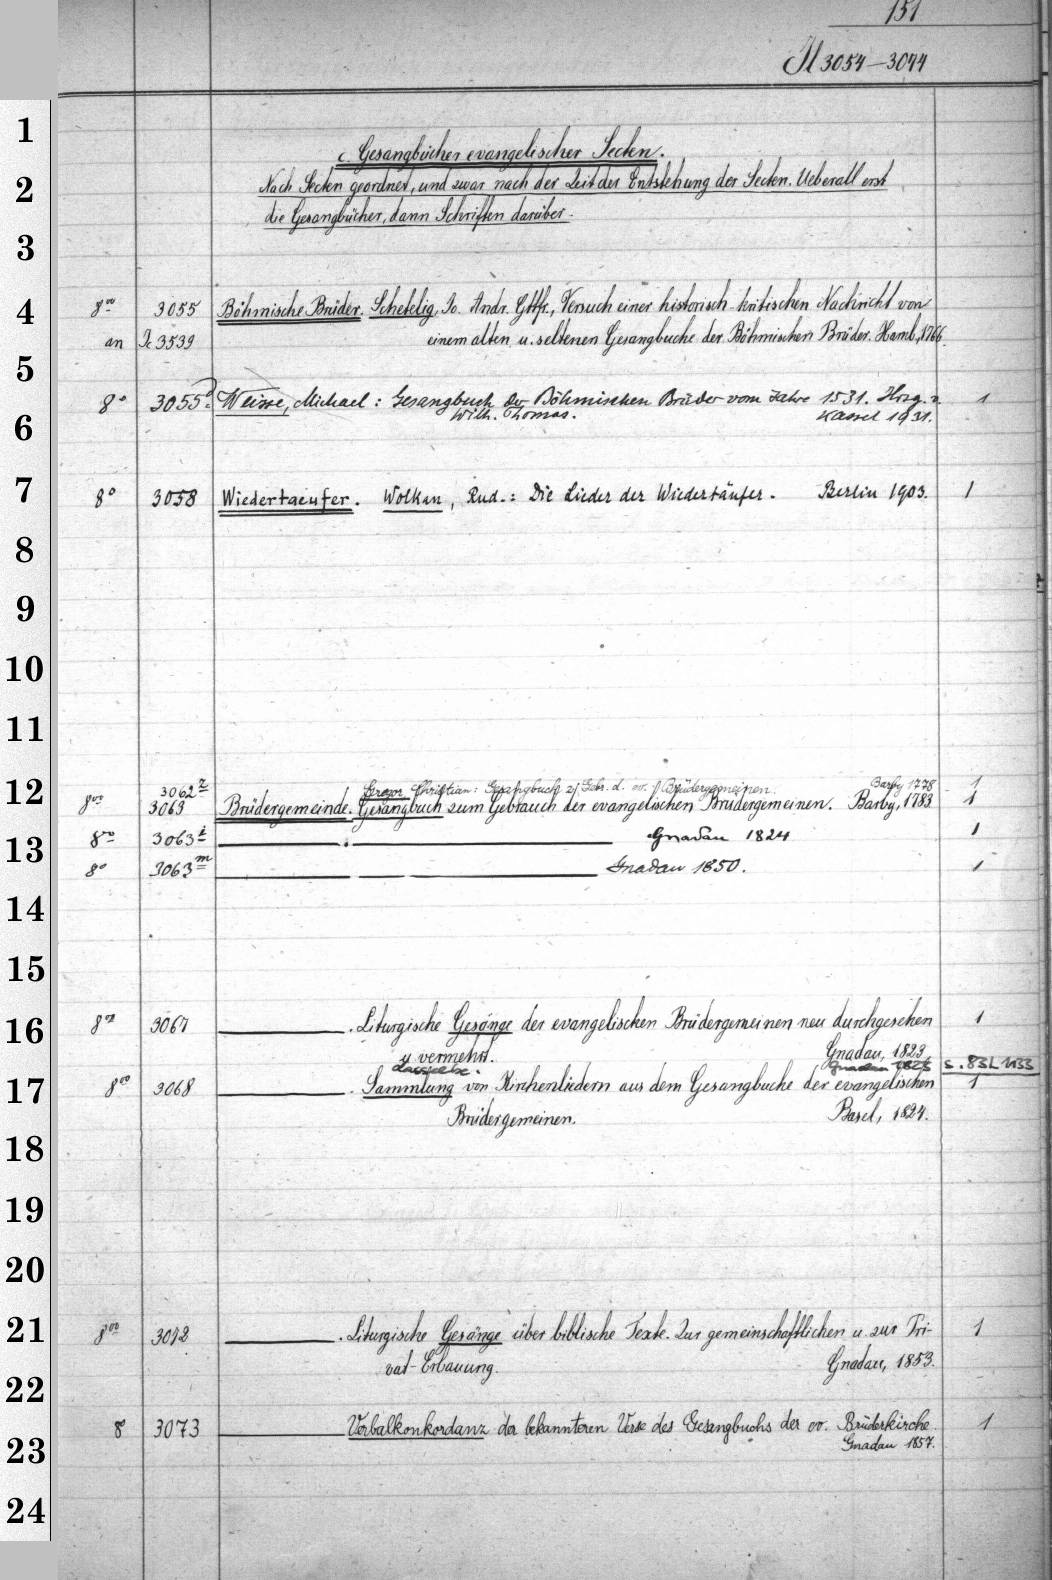 151
Il 3054-3074
1
c. Gesangbücher evangelischer Secten.
2
Nach Secten geordnet, und zwar nach der Zeit der Entstehung der Secten. Ueberall erst
die Gesangbücher, dann Schriften darüber.
3
4
8° 3055 Böhmische Brüder. Schetelig, Jo. Andr. Gttfr., Versuch einer historisch-kritischen Nachricht von
an 3539 einem alten u. seltenen Gesangbuche der Böhmischen Brüder. Hamb., 1766.
5
8° 3055 Weisse, Michael: Gesangbuch der Böhmischen Brüder vom Jahre 1531. Hrsg. v. 1
6
Wilh. Thomas. Kassel 1931.
7
8° 3058 Wiedertaeufer. Wolkan, Rud.: Die Lieder der Wiedertäufer. Berlin 1903. 1
8
9
10
11
12
3062 Gregor Christian: Gesangbuch z. Gebr. d. ev. Brüdergemeinen. Barby 1778 1
8° 3063 Brüdergemeinde. Gesangbuch zum Gebrauch der evangelischen Brüdergemeinen. Barby, 1783 1
13
8° 3063i Gnadau 1824 1
8° 3063m Gnadau 1850. 1
14
15
16
8° 3067 . Liturgische Gesänge der evangelischen Brüdergemeinen neu durchgesehen 1
u. vermehrt. Gnadau, 1823
Dasselbe. Gnadau 1823
17
8° 3068 . Sammlung von Kirchenliedern aus dem Gesangbuche der evangelischen 1
Brüdergemeinen. Basel, 1824.
18
19
20
21
8° 3072 . Liturgische Gesänge über biblische Texte. Zur gemeinschaftlichen u. zur Pri- 1
vat-Erbauung. Gnadau, 1853.
22
8° 3073 Verbalkonkordanz der bekannteren Verse des Gesangbuchs der ev. Brüderkirche 1
Gnadau 1857.
23
24